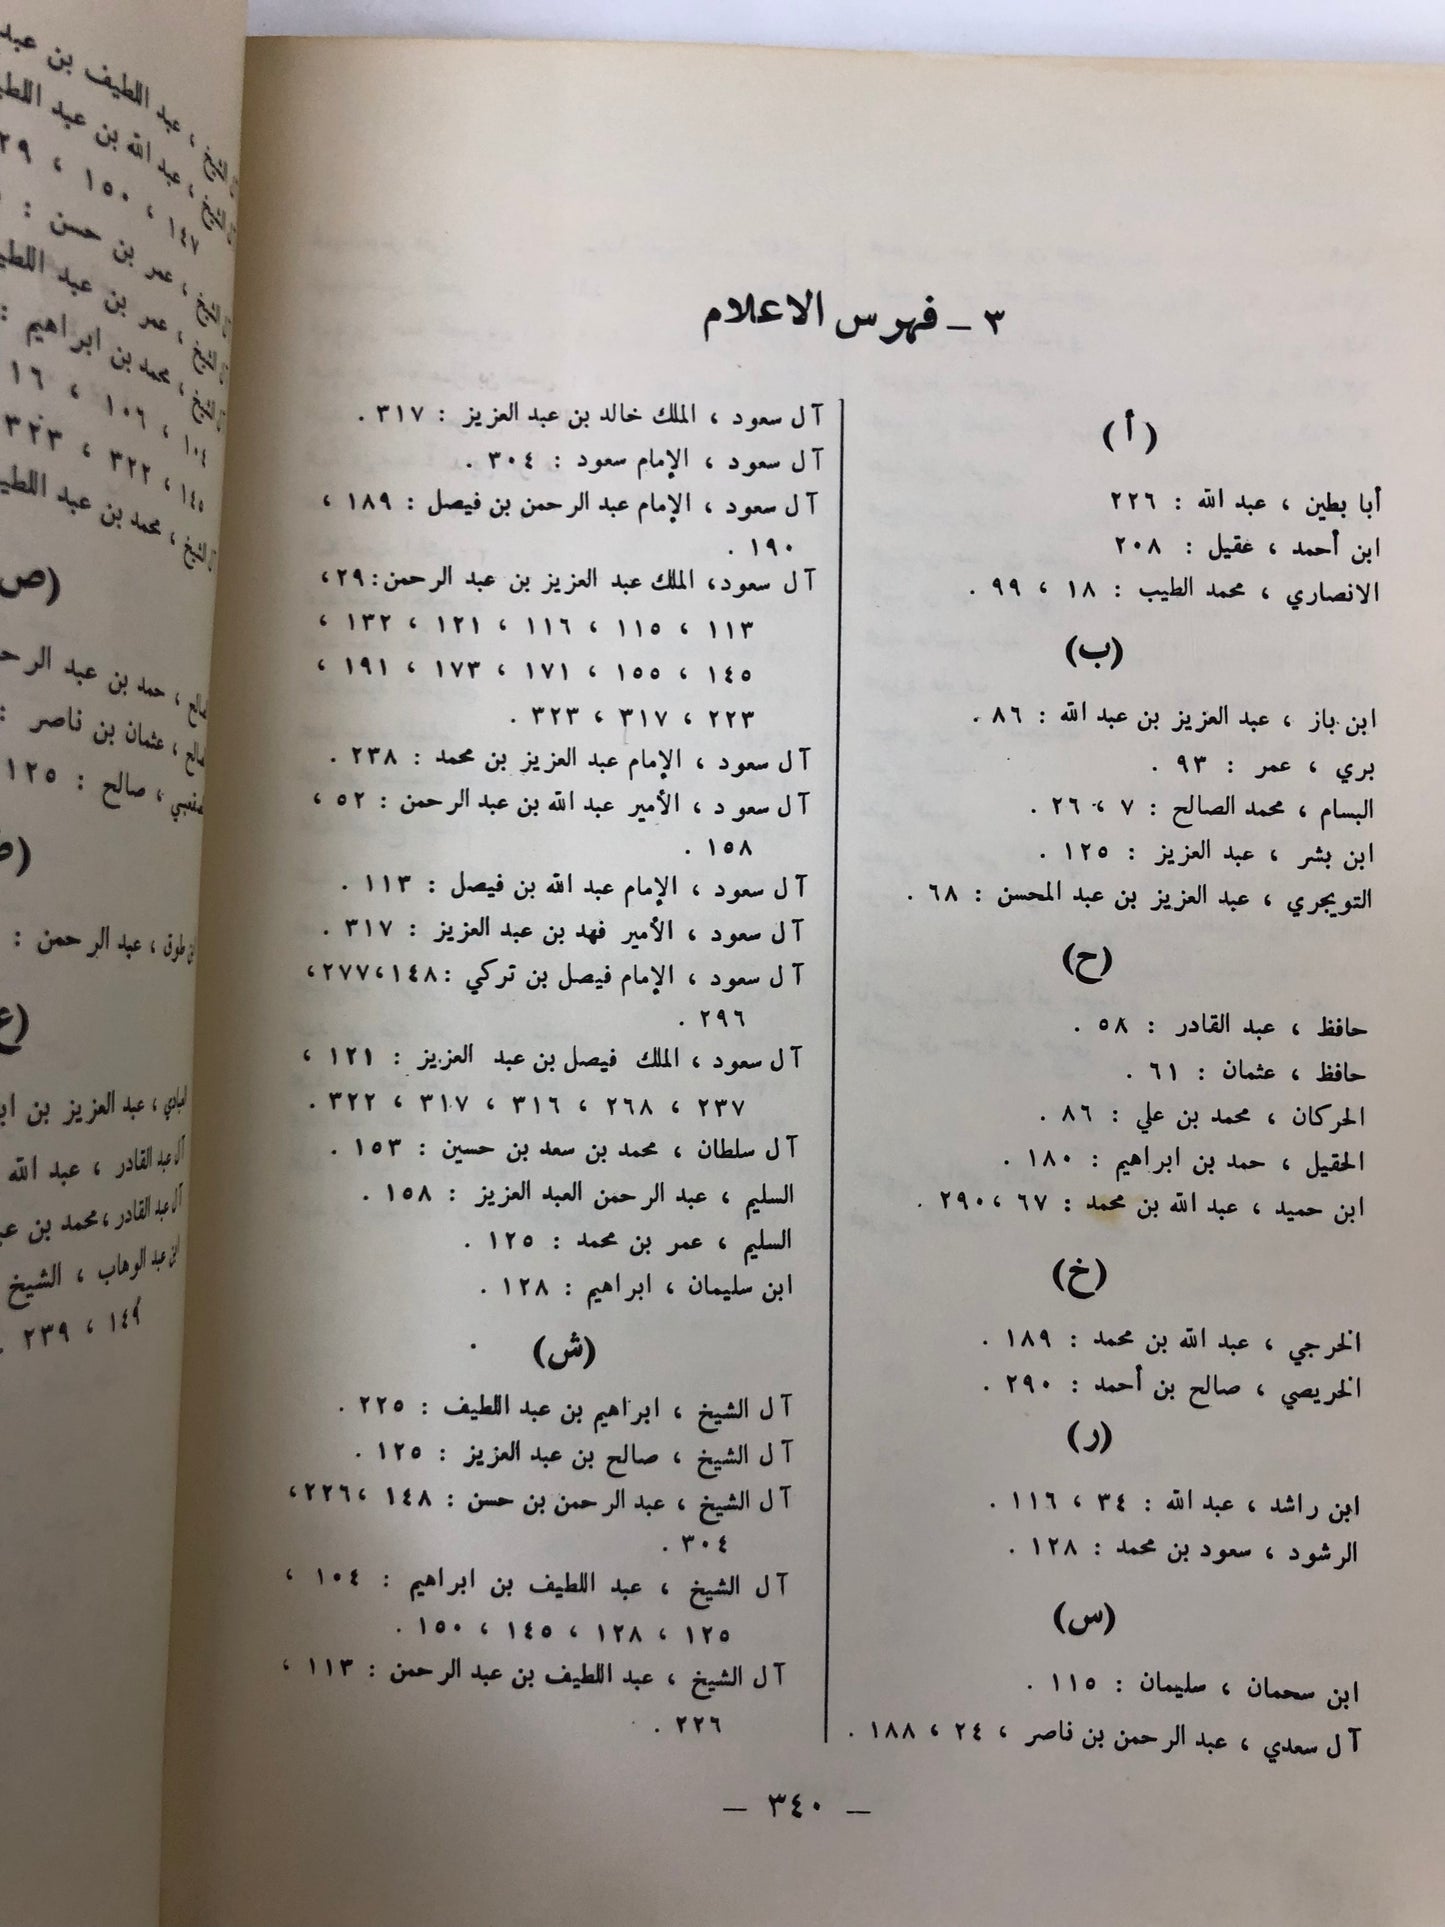 ٣ ـ فهرس الاعلام
( أ )
أبا بطين ، عبد الله : ٢٢٦
ابن أحمد ، عقيل : ٢٠٨
الانصاري ، محمد الطيب : ١٨ ، ٩٩ .
(ب)
ابن باز ، عبد العزيز بن عبد الله : ٨٦ .
بري ، عمر : ٩٣ .
البسام ، محمد الصالح : ٧ ، ٢٦ .
ابن بشر ، عبد العزيز : ١٢٥ .
التويجري ، عبد العزيز بن عبد المحسن : ٦٨ .
(ح)
حافظ ، عبد القادر : ٥٨ .
حافظ ، عثمان : ٦١ .
الحركان ، محمد بن علي : ٨٦ .
الحقيل ، حمد بن ابراهيم : ١٨٠ .
ابن حميد ، عبد الله بن محمد : ٦٧ ، ٢٩٠ .
(خ)
الخرجي ، عبد الله بن محمد : ١٨٩ .
الخريصي ، صالح بن أحمد : ٢٩٠ .
(ر)
ابن راشد ، عبد الله : ٣٤ ، ١١٦ .
الرشود ، سعود بن محمد : ١٢٨ .
(س)
ابن سحمان ، سليمان : ١١٥ .
آل سعدي ، عبد الرحمن بن ناصر ، ٢٤ ، ١٨٨ .
آل سعود ، الملك خالد بن عبد العزيز : ٣١٧ .
آل سعود ، الإمام سعود : ٣٠٤ .
آل سعود ، الإمام عبد الرحمن بن فيصل : ١٨٩ ،
١٩٠ .
آل سعود، الملك عبد العزيز بن عبد الرحمن: ٢٩،
١١٣ ، ١١٥ ، ١١٦ ، ١٢١ ، ١٣٢ ،
١٤٥ ، ١٥٥ ، ١٧١ ، ١٧٣ ، ١٩١ ،
٢٢٣ ، ٣١٧ ، ٣٢٣ .
آل سعود ، الإمام عبد العزيز بن محمد : ٢٣٨ .
آل سعود ، الأمير عبد الله بن عبد الرحمن : ٥٢ ،
١٥٨ .
آل سعود ، الإمام عبد الله بن فيصل : ١١٣ .
آل سعود ، الأمير فهد بن عبد العزيز : ٣١٧ .
آل سعود ، الإمام فيصل بن تركي : ١٤٨، ٢٧٧،
٢٩٦ .
آل سعود ، الملك فيصل بن عبد العزيز : ١٢١ ،
٢٣٧ ، ٢٦٨ ، ٣١٦ ، ٣١٧ ، ٣٢٢ .
آل سلطان ، محمد بن سعد بن حسين : ١٥٣ .
السليم ، عبد الرحمن العبد العزيز : ١٥٨ .
السليم ، عمر بن محمد : ١٢٥ .
ابن سليمان ، ابراهيم : ١٢٨ .
(ش)
آل الشيخ ، ابراهيم بن عبد اللطيف : ٢٢٥ .
آل الشيخ ، صالح بن عبد العزيز : ١٢٥ .
آل الشيخ ، عبد الرحمن بن حسن : ١٤٨ ، ٢٢٦،
٣٠٤ .
آل الشيخ ، عبد اللطيف بن ابراهيم : ١٠٤ ،
١٢٥ ، ١٢٨ ، ١٤٥ ، ١٥٠ .
آل الشيخ ، عبد اللطيف بن عبد الرحمن : ١١٣ ،
٢٢٦ .
ـ ٣٤٠ ـ
الشيخ ، عبد اللطيف بن عبد
الشيخ ، عبد الله بن عبد
١٤٧ ، ١٥٠ ،
الشيخ ، عمر بن حسن :
الشيخ ، عمر بن عبد
الشيخ ، محمد بن ابراهيم :
١٠٤ ، ١٠٦ ،
١٤٥ ، ٣٢٢ ، ٣٢٣
الشيخ ، محمد بن عبد
(ص
، حمد بن عبد
، عثمان بن ناصر :
، صالح : ١٢٥
طوق ، عبد الرحمن :
(ع
العبادي ، عبد العزيز بن
آل عبد القادر ، عبد الله
آل عبد القادر ، محمد بن
ابن عبد الوهاب ، الشيخ
١٤٩ ، ٢٣٩ .